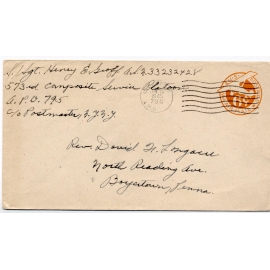 S/Sgt. Henry E. Groff A.S.N. 33232428
573rd Composite Service Platoon
A.P.O. 795
c/o Postmaster, N.Y. N.Y.
Rev. David F. Longacre
North Reading Ave.
Boyertown, Penna.